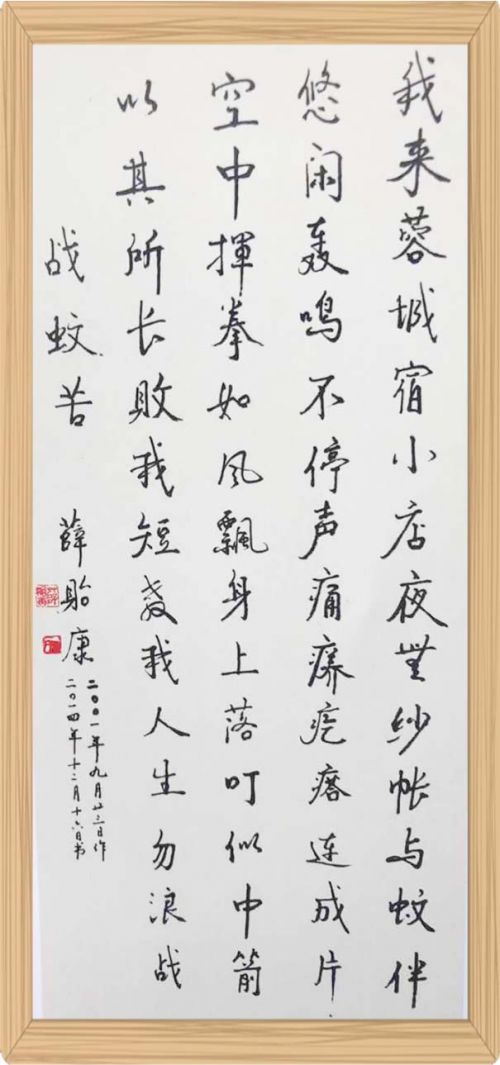 我来蓉城宿小店夜无纱帐与蚊伴
悠闲轰鸣不停声痛痒疙瘩连成片
空中揮拳如风飘身上落叮似中箭
以其所长败我短教我人生勿浪战
战蚊苦 薛贻康
二〇〇一年九月廿三日作
二〇一四年十二月十六日书